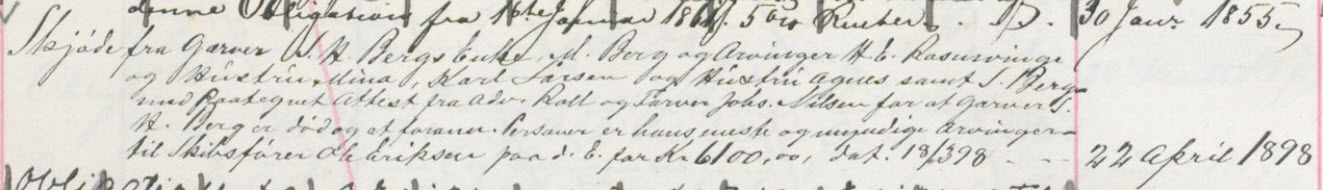 denne Obligation fra 16de Januar 1861. 5 pro Renter. 30 Janr 1855
Skjöde fra Garver S. H. Bergs Enke, M. Berg og Arvinger H. E. Rosenvinge
og Hustru Mina, Karl Larsen og Hustru Agnes samt S. Berg
med Paategnet Attest fra Adv. Roll og Farver Johs. Nilsen for at Garver S.
H. Berg er död og at forann. Personer er hans eneste og myndige Arvinger
til Skibsförer Ole Eriksen paa d. E. for Kr 6100,00, Dat. 18/3 98 - - - 22 April 1898